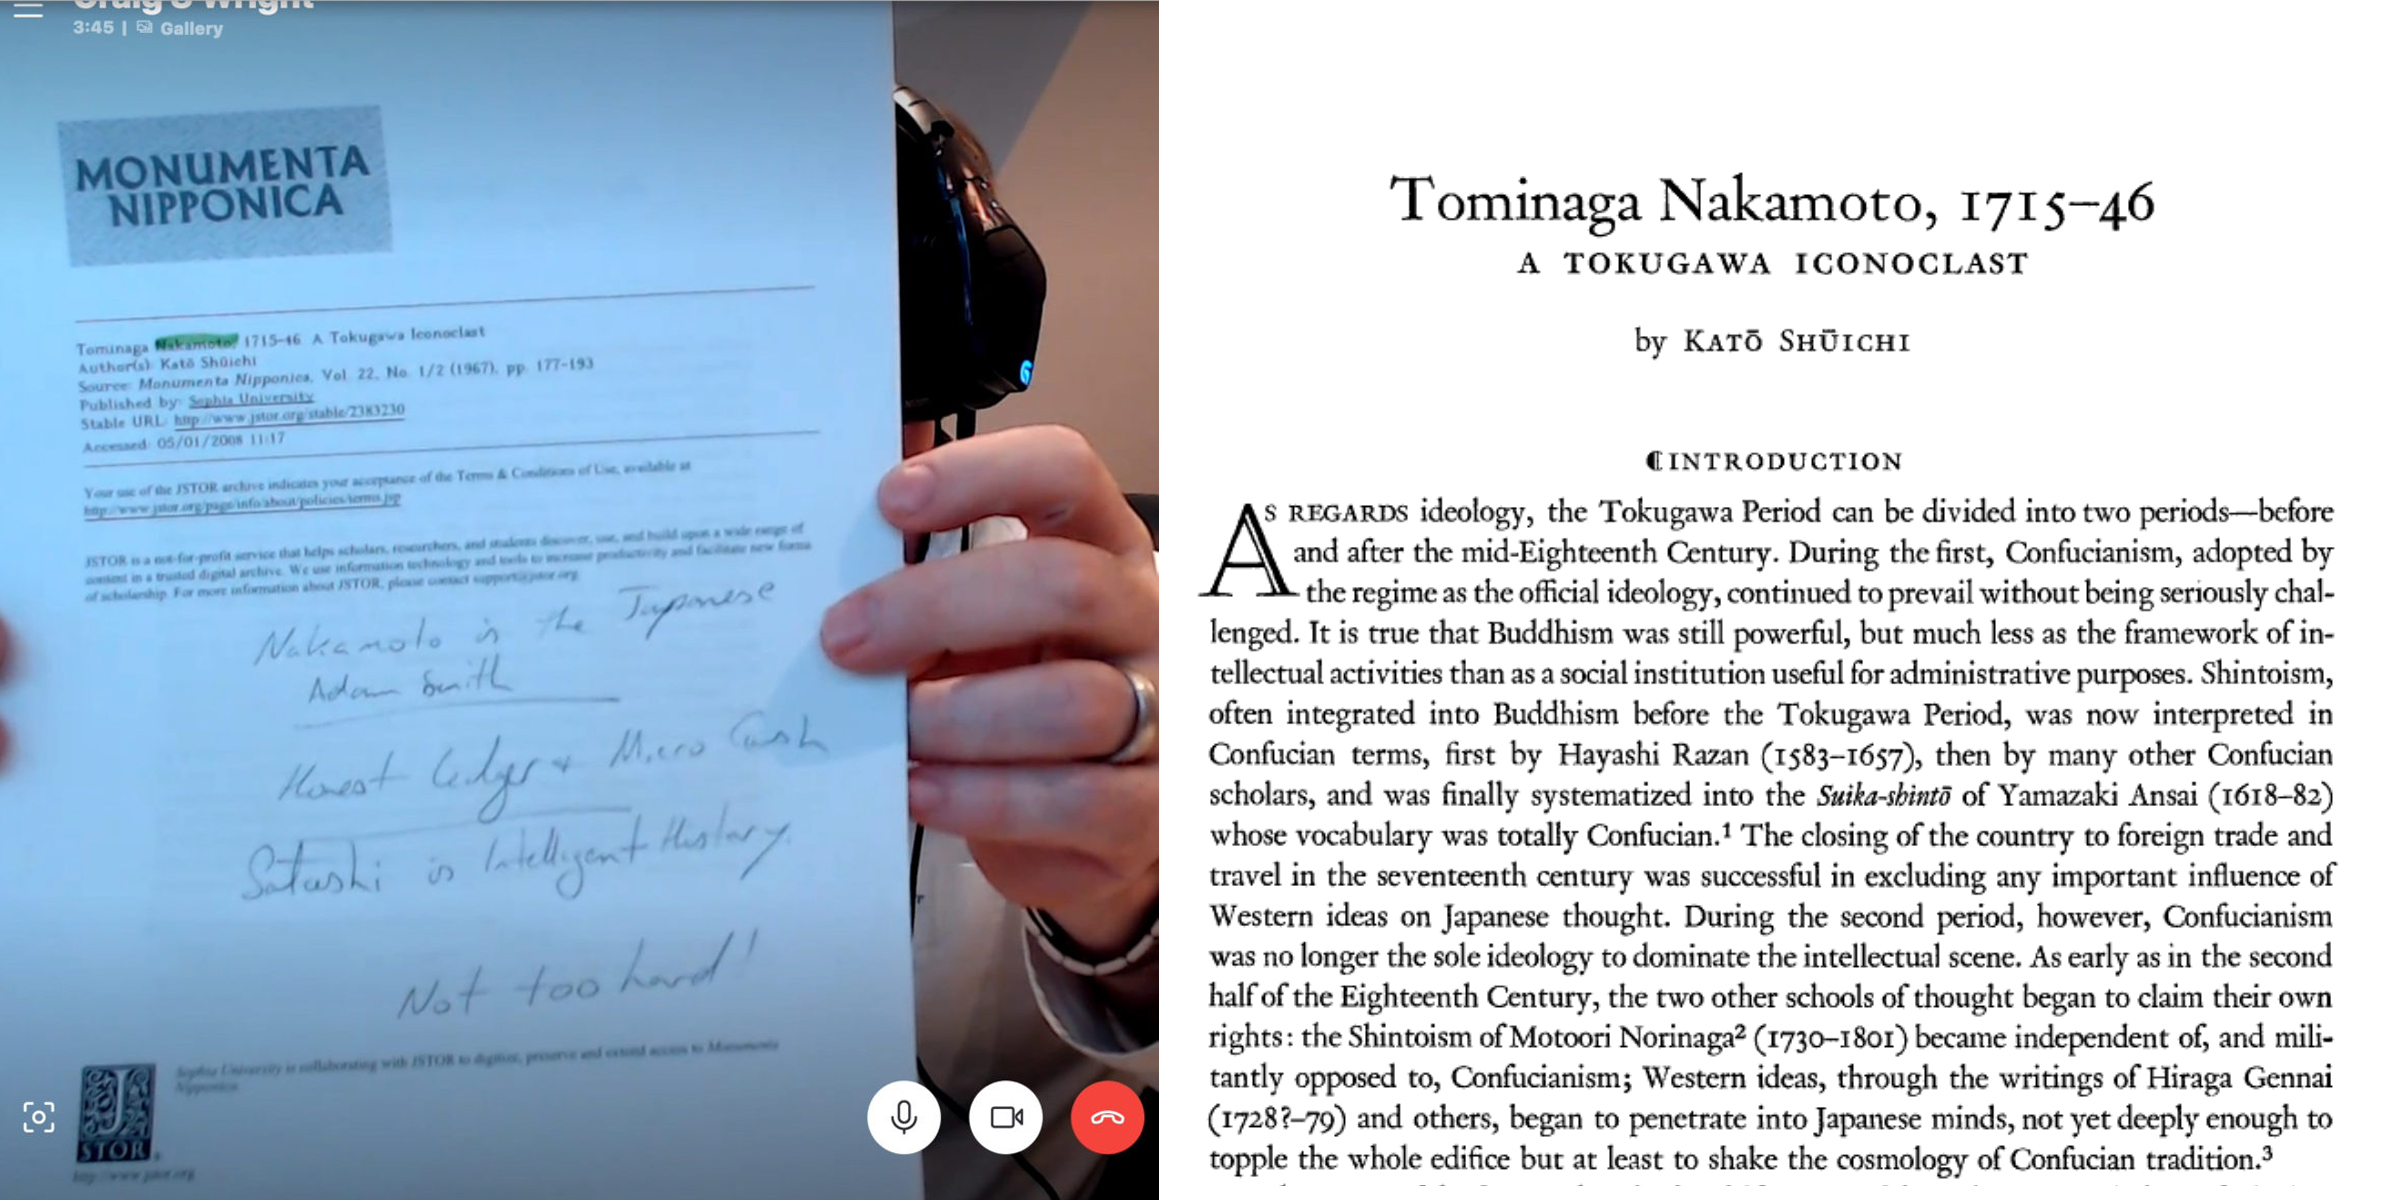 Craig S Wright
3:45 | Gallery
MONUMENTA
NIPPONICA
Tominaga Nakamoto, 1715-46 A Tokugawa Iconoclast
Author(s): Katō Shūichi
Source: Monumenta Nipponica, Vol. 22, No. 1/2 (1967), pp. 177-193
Published by: Sophia University
Stable URL: http://www.jstor.org/stable/2383230
Accessed: 05/01/2008 11:17
Your use of the JSTOR archive indicates your acceptance of the Terms & Conditions of Use, available at
http://www.jstor.org/page/info/about/policies/terms.jsp
JSTOR is a not-for-profit service that helps scholars, researchers, and students discover, use, and build upon a wide range of
content in a trusted digital archive. We use information technology and tools to increase productivity and facilitate new forms
of scholarship. For more information about JSTOR, please contact support@jstor.org.
Nakamoto is the Japanese
Adam Smith
Honest Ledger + Micro Cash
Satoshi is Intelligent History.
Not too hard!
Sophia University is collaborating with JSTOR to digitize, preserve and extend access to Monumenta
Nipponica
JSTOR
http://www.jstor.org
Tominaga Nakamoto, 1715–46
A TOKUGAWA ICONOCLAST
by KATŌ SHŪICHI
INTRODUCTION
AS REGARDS ideology, the Tokugawa Period can be divided into two periods—before
and after the mid-Eighteenth Century. During the first, Confucianism, adopted by
the regime as the official ideology, continued to prevail without being seriously chal-
lenged. It is true that Buddhism was still powerful, but much less as the framework of in-
tellectual activities than as a social institution useful for administrative purposes. Shintoism,
often integrated into Buddhism before the Tokugawa Period, was now interpreted in
Confucian terms, first by Hayashi Razan (1583–1657), then by many other Confucian
scholars, and was finally systematized into the Suika-shintō of Yamazaki Ansai (1618–82)
whose vocabulary was totally Confucian.¹ The closing of the country to foreign trade and
travel in the seventeenth century was successful in excluding any important influence of
Western ideas on Japanese thought. During the second period, however, Confucianism
was no longer the sole ideology to dominate the intellectual scene. As early as in the second
half of the Eighteenth Century, the two other schools of thought began to claim their own
rights: the Shintoism of Motoori Norinaga² (1730–1801) became independent of, and mili-
tantly opposed to, Confucianism; Western ideas, through the writings of Hiraga Gennai
(1728?–79) and others, began to penetrate into Japanese minds, not yet deeply enough to
topple the whole edifice but at least to shake the cosmology of Confucian tradition.³